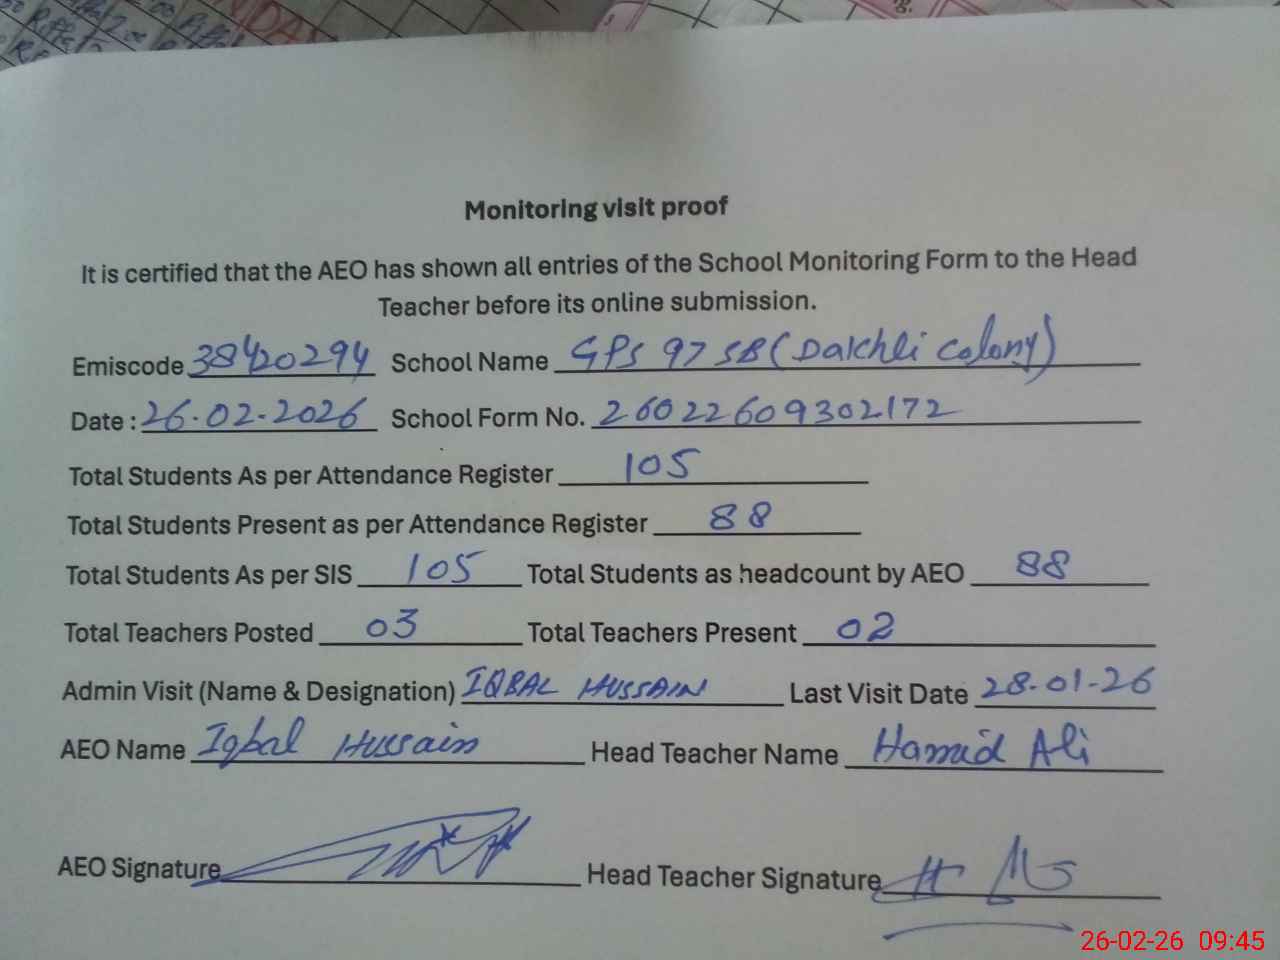 Monitoring visit proof
It is certified that the AEO has shown all entries of the School Monitoring Form to the Head
Teacher before its online submission.
Emiscode 38420294 School Name GPS 97 SB (Dakhli colony)
Date : 26.02.2026 School Form No. 26022609302172
Total Students As per Attendance Register 105
Total Students Present as per Attendance Register 88
Total Students As per SIS 105 Total Students as headcount by AEO 88
Total Teachers Posted 03 Total Teachers Present 02
Admin Visit (Name & Designation) IQBAL HUSSAIN Last Visit Date 28.01.26
AEO Name Iqbal Hussain Head Teacher Name Hamid Ali
AEO Signature Head Teacher Signature
26-02-26 09:45